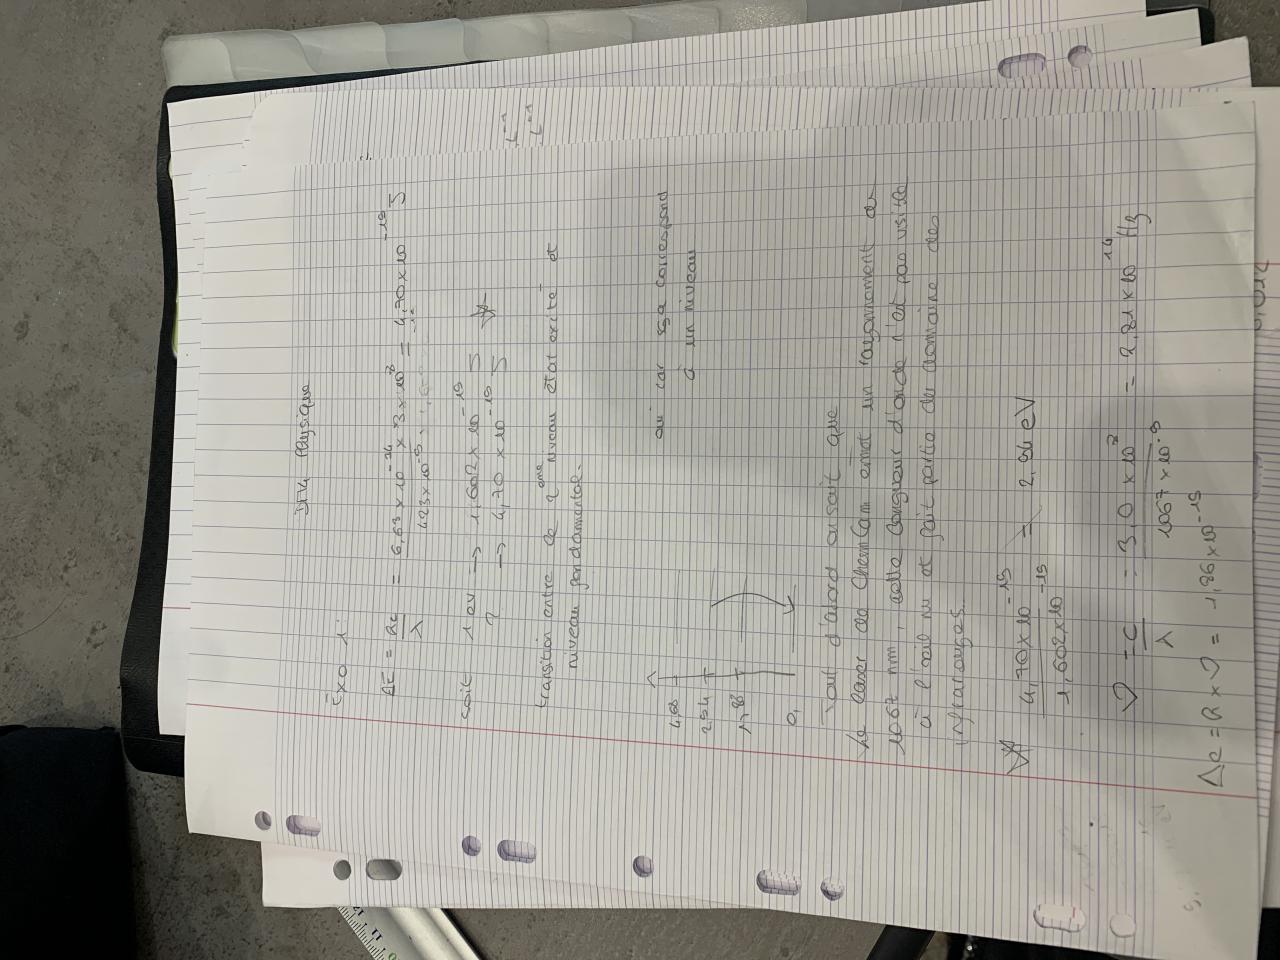 DM Physique
Exo 1.
ΔE = hc / λ = 6,63 × 10⁻³⁴ × 3 × 10⁸ / 423 × 10⁻⁹ = 4,70 × 10⁻¹⁹ J
soit 1 ev → 1,602 × 10⁻¹⁹ J
? → 4,70 × 10⁻¹⁹ J
transition entre le 2ème niveau état excité et
niveau fondamental.
oui car ssa correspond
à un niveau
4,68
2,94
1,88
0,
Tout d'abord on sait que
Le laser de ChemCam émet un rayonnement de
1067 nm, cette longueur d'onde n'est pas visible
à l'oeil nu et fait partie du domaine des
infrarouges.
4,70 × 10⁻¹⁹ / 1,602 × 10⁻¹⁹ = 2,94 eV
ν = c / λ = 3,0 × 10⁸ / 1067 × 10⁻⁹ = 2,81 × 10¹⁴ Hz
Δe = h × ν = 1,86 × 10⁻¹⁹